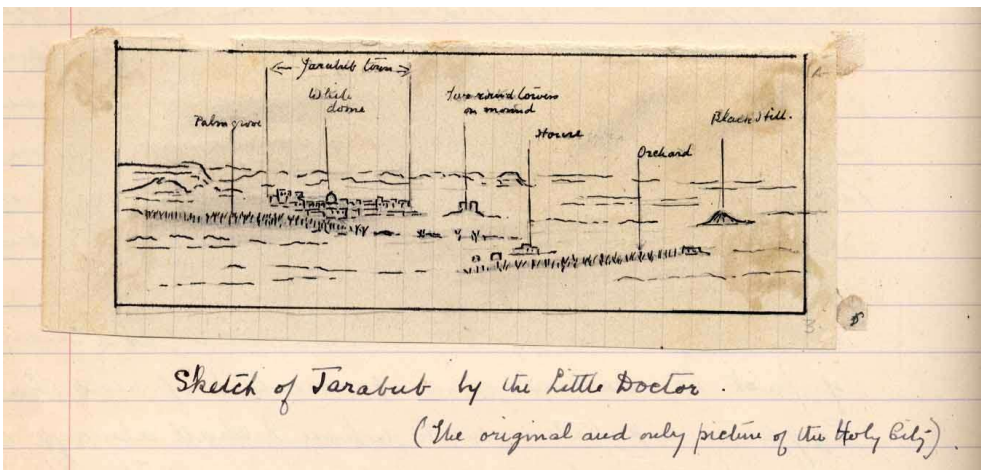 ← Jarabub town →
White
dome
Two round towers
on mound
Palm grove
House
Black Hill.
Orchard
Sketch of Jarabub by the Little Doctor.
(The original and only picture of the Holy City).